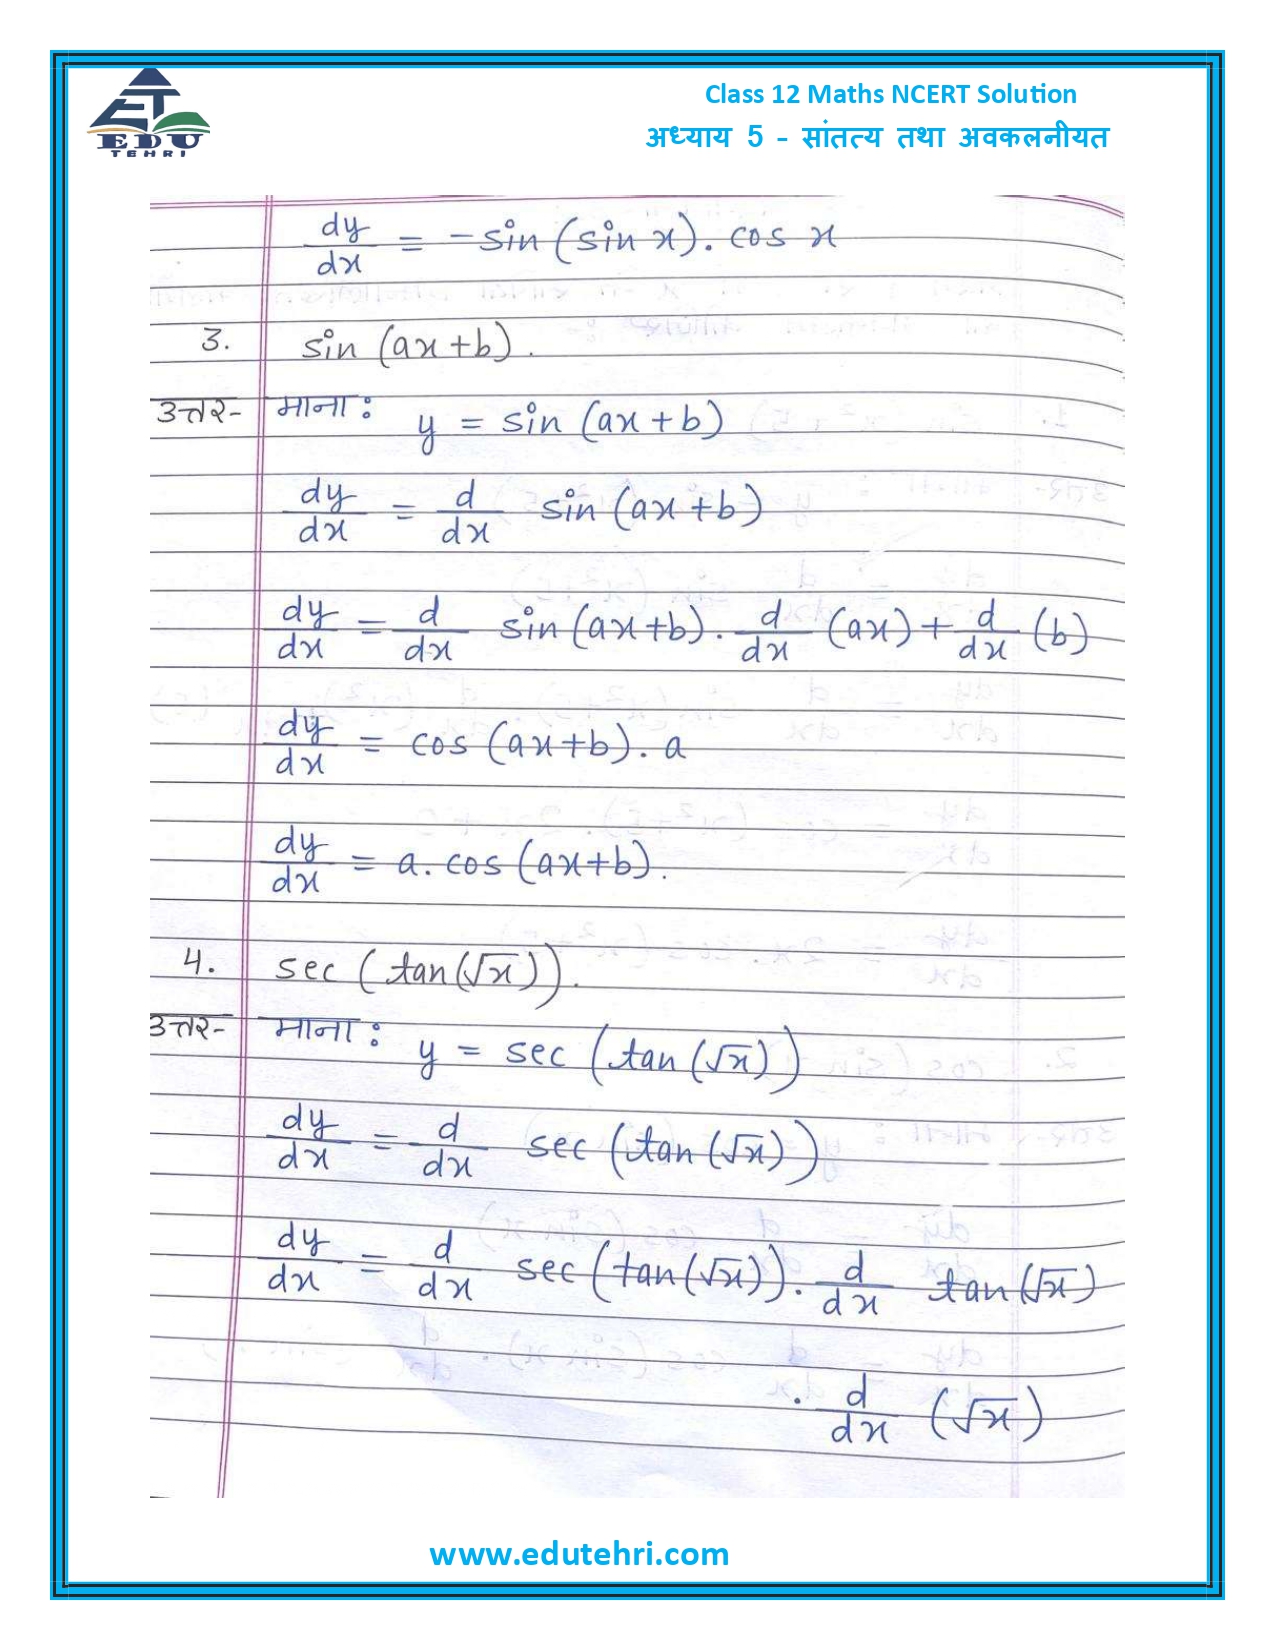 EDU
TEHRI
Class 12 Maths NCERT Solution
अध्याय 5 - सांतत्य तथा अवकलनीयत
dy/dx = -sin(sin x). cos x
3. sin (ax+b).
उत्तर- माना: y = sin (ax+b)
dy/dx = d/dx sin (ax+b)
dy/dx = d/dx sin(ax+b). d/dx (ax) + d/dx (b)
dy/dx = cos (ax+b). a
dy/dx = a. cos (ax+b).
4. sec (tan(√x)).
उत्तर- माना: y = sec (tan (√x))
dy/dx = d/dx sec (tan (√x))
dy/dx = d/dx sec (tan(√x)). d/dx tan(√x)
. d/dx (√x)
www.edutehri.com